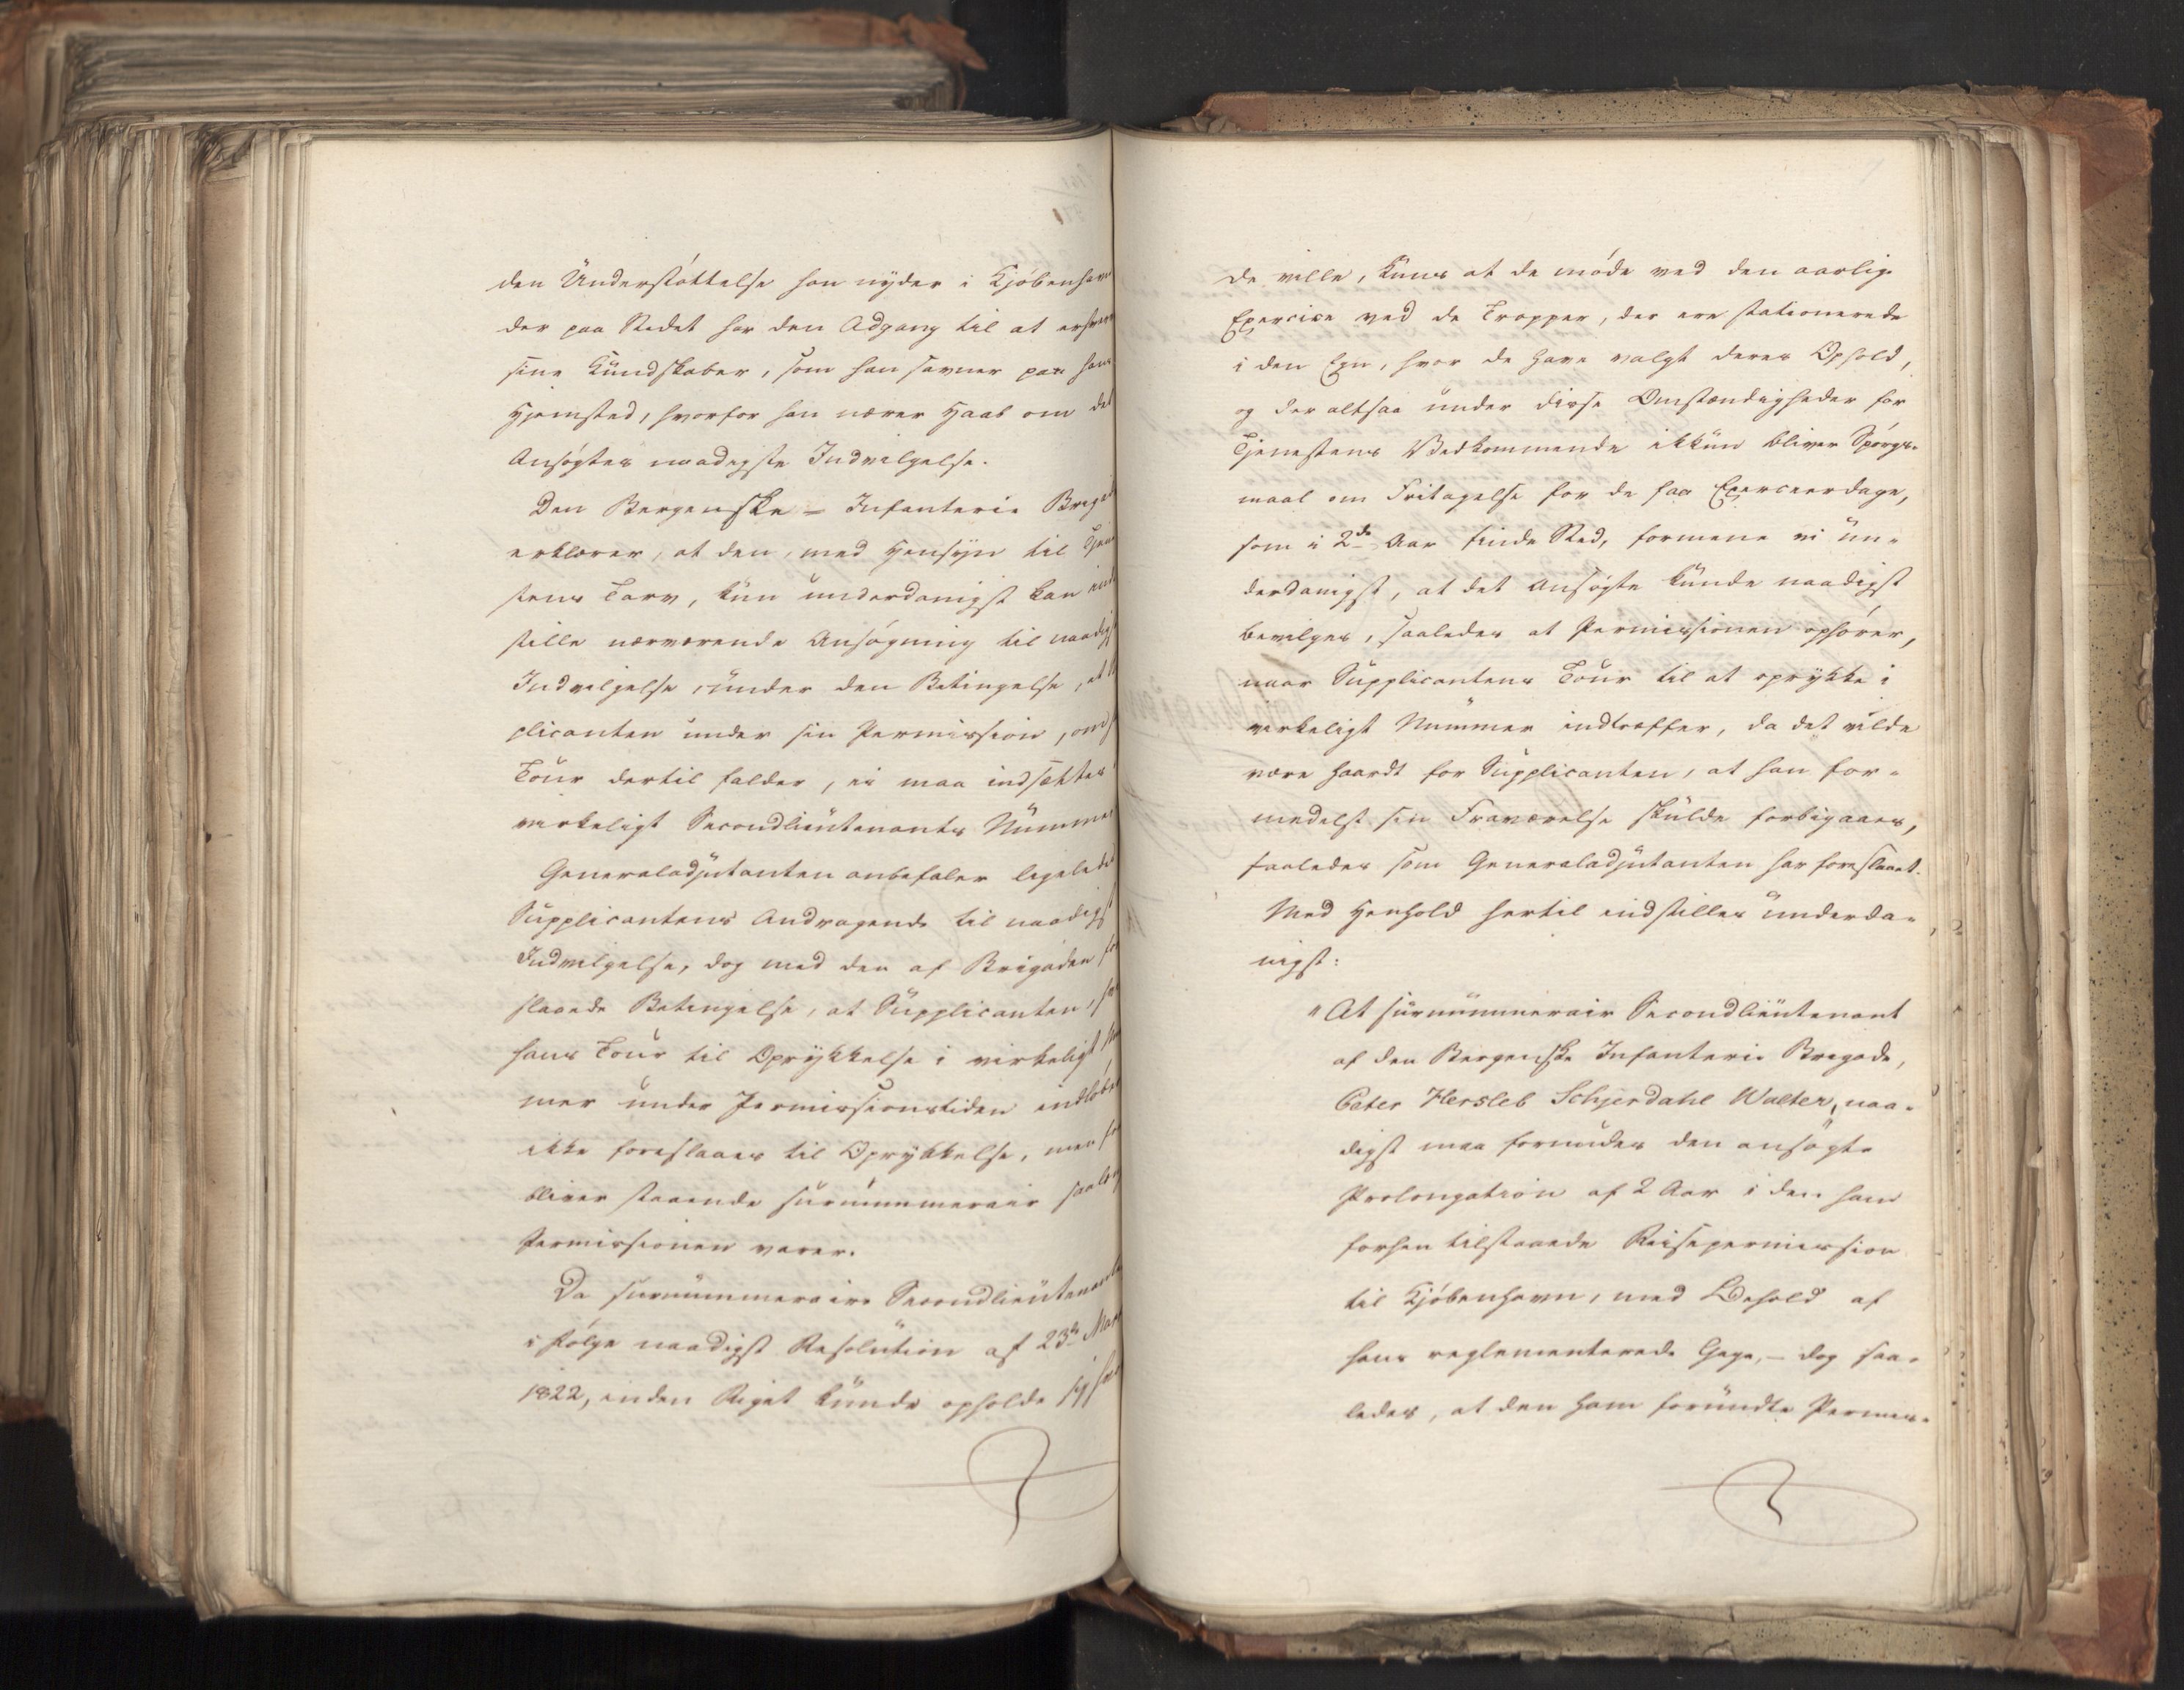 den Understøttelse han nyder i Kjøbenhavn
der paa Stedet har den Adgang til at erhver
sine Kundskaber, som han savner paa hans
Hjemsted, hvorfor han nærer Haab om det
Ansøgtes naadigste Indvilgelse.
Den Bergenske-Infanterie Brigad
erklærer, at den, med Hensyn til Tjene
stens Tarv, kun underdanigst kan ind
stille nærværende Ansøgning til naadigst
Indvilgelse, under den Betingelse, at
plicanten under sin Permission, om
Tour dertil falder, ei maa indsættes
virkeligt Secondlieutenants Nummer
Generaladjutanten anbefaler ligeledes
Supplicantens Andragende til naadigst
Indvilgelse, dog med den af Brigaden fo
slaaede Betingelse, at Supplicanten,
hans Tour til Oprykkelse i virkeligt Nu
mer under Permissionstiden indløber
ikke foreslaaes til Oprykkelse, men
bliver staaende surnummerair saalæng
Permissionen varer.
Da surnummeraire Secondlieutenanter
i Følge naadigst Resolution af 23de Mar
1822, inden Riget kunde opholde sig
de ville, kuns at de møde ved den aarlige
Exercice ved de Tropper, der ere stationerede
i den Egn, hvor de have valgt deres Ophold,
og der altsaa under disse Omstændigheder for
Tjenestens Vedkommende ikkun bliver Spørgs-
maal om Fritagelse for de faa Exerceerdage,
som i 2de Aar finde Sted, formene vi un-
derdanigst, at det Ansøgte kunde naadigst
bevilges, saaledes at Permissionen ophører,
naar Supplicantens Tour til at oprykke i
virkeligt Nummer indtræffer, da det vilde
være haardt for Supplicanten, at han for-
medelst sin Fraværelse skulde forbigaaes,
saaledes som Generaladjutanten har foreslaaet.
Med Henhold hertil indstilles underda-
nigst:
"At surnummerair Secondlieutenant
af den Bergenske Infanterie Brigade,
Peter Hersleb Schjerdahl Walter, naa-
digst maa forundes den ansøgte
Prolongation af 2 Aar i den ham
forhen tilstaaede Reisepermission
til Kjøbenhavn, med Behold af
hans reglementerede Gage, - dog saa-
ledes, at den ham forundte Permis-